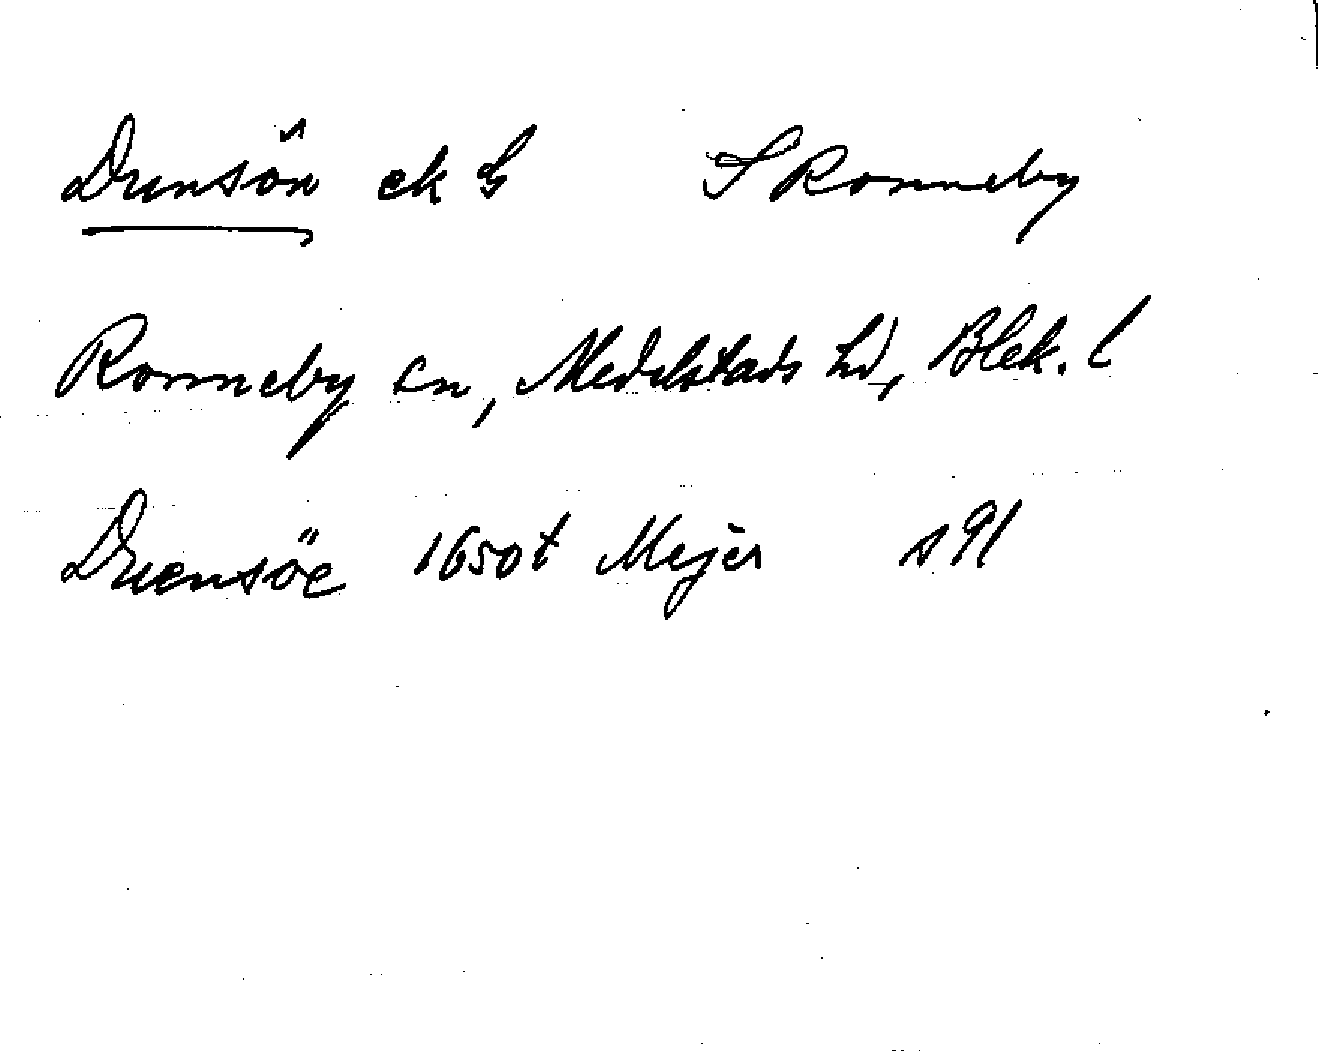 Dunsön ek G S Ronneby
Ronneby sn, Medelstads hd, Blek. l
Duensöe 1650t Mejer s 91